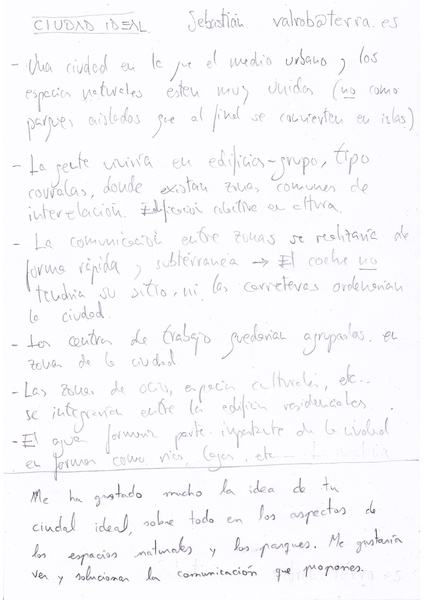 CIUDAD IDEAL Sebastián valrob@terra.es
- Una ciudad en la que el medio urbano y los
espacios naturales esten muy unidos (no como
parques aislados que al final se convierten en islas)
- La gente vivira en edificios-grupo, tipo
corralas, donde existan zonas comunes de
interrelación. Edificación colectiva en altura.
- La comunicación entre zonas se realizaría de
forma rápida y subterranea → El coche no
tendria su sitio, ni las carreteras ordenarian
la ciudad.
- Los centros de trabajo quedarian agrupados en
zonas de la ciudad
- Las zonas de ocio, espacios culturales, etc...
se integrarían entre los edificios residenciales.
- El agua formaria parte importante de la ciudad
en formas como rios, lagos, etc...
Me ha gustado mucho la idea de tu
ciudad ideal, sobre todo en los aspectos de
los espacios naturales y los parques. Me gustaría
ver y solucionar la comunicación que propones.